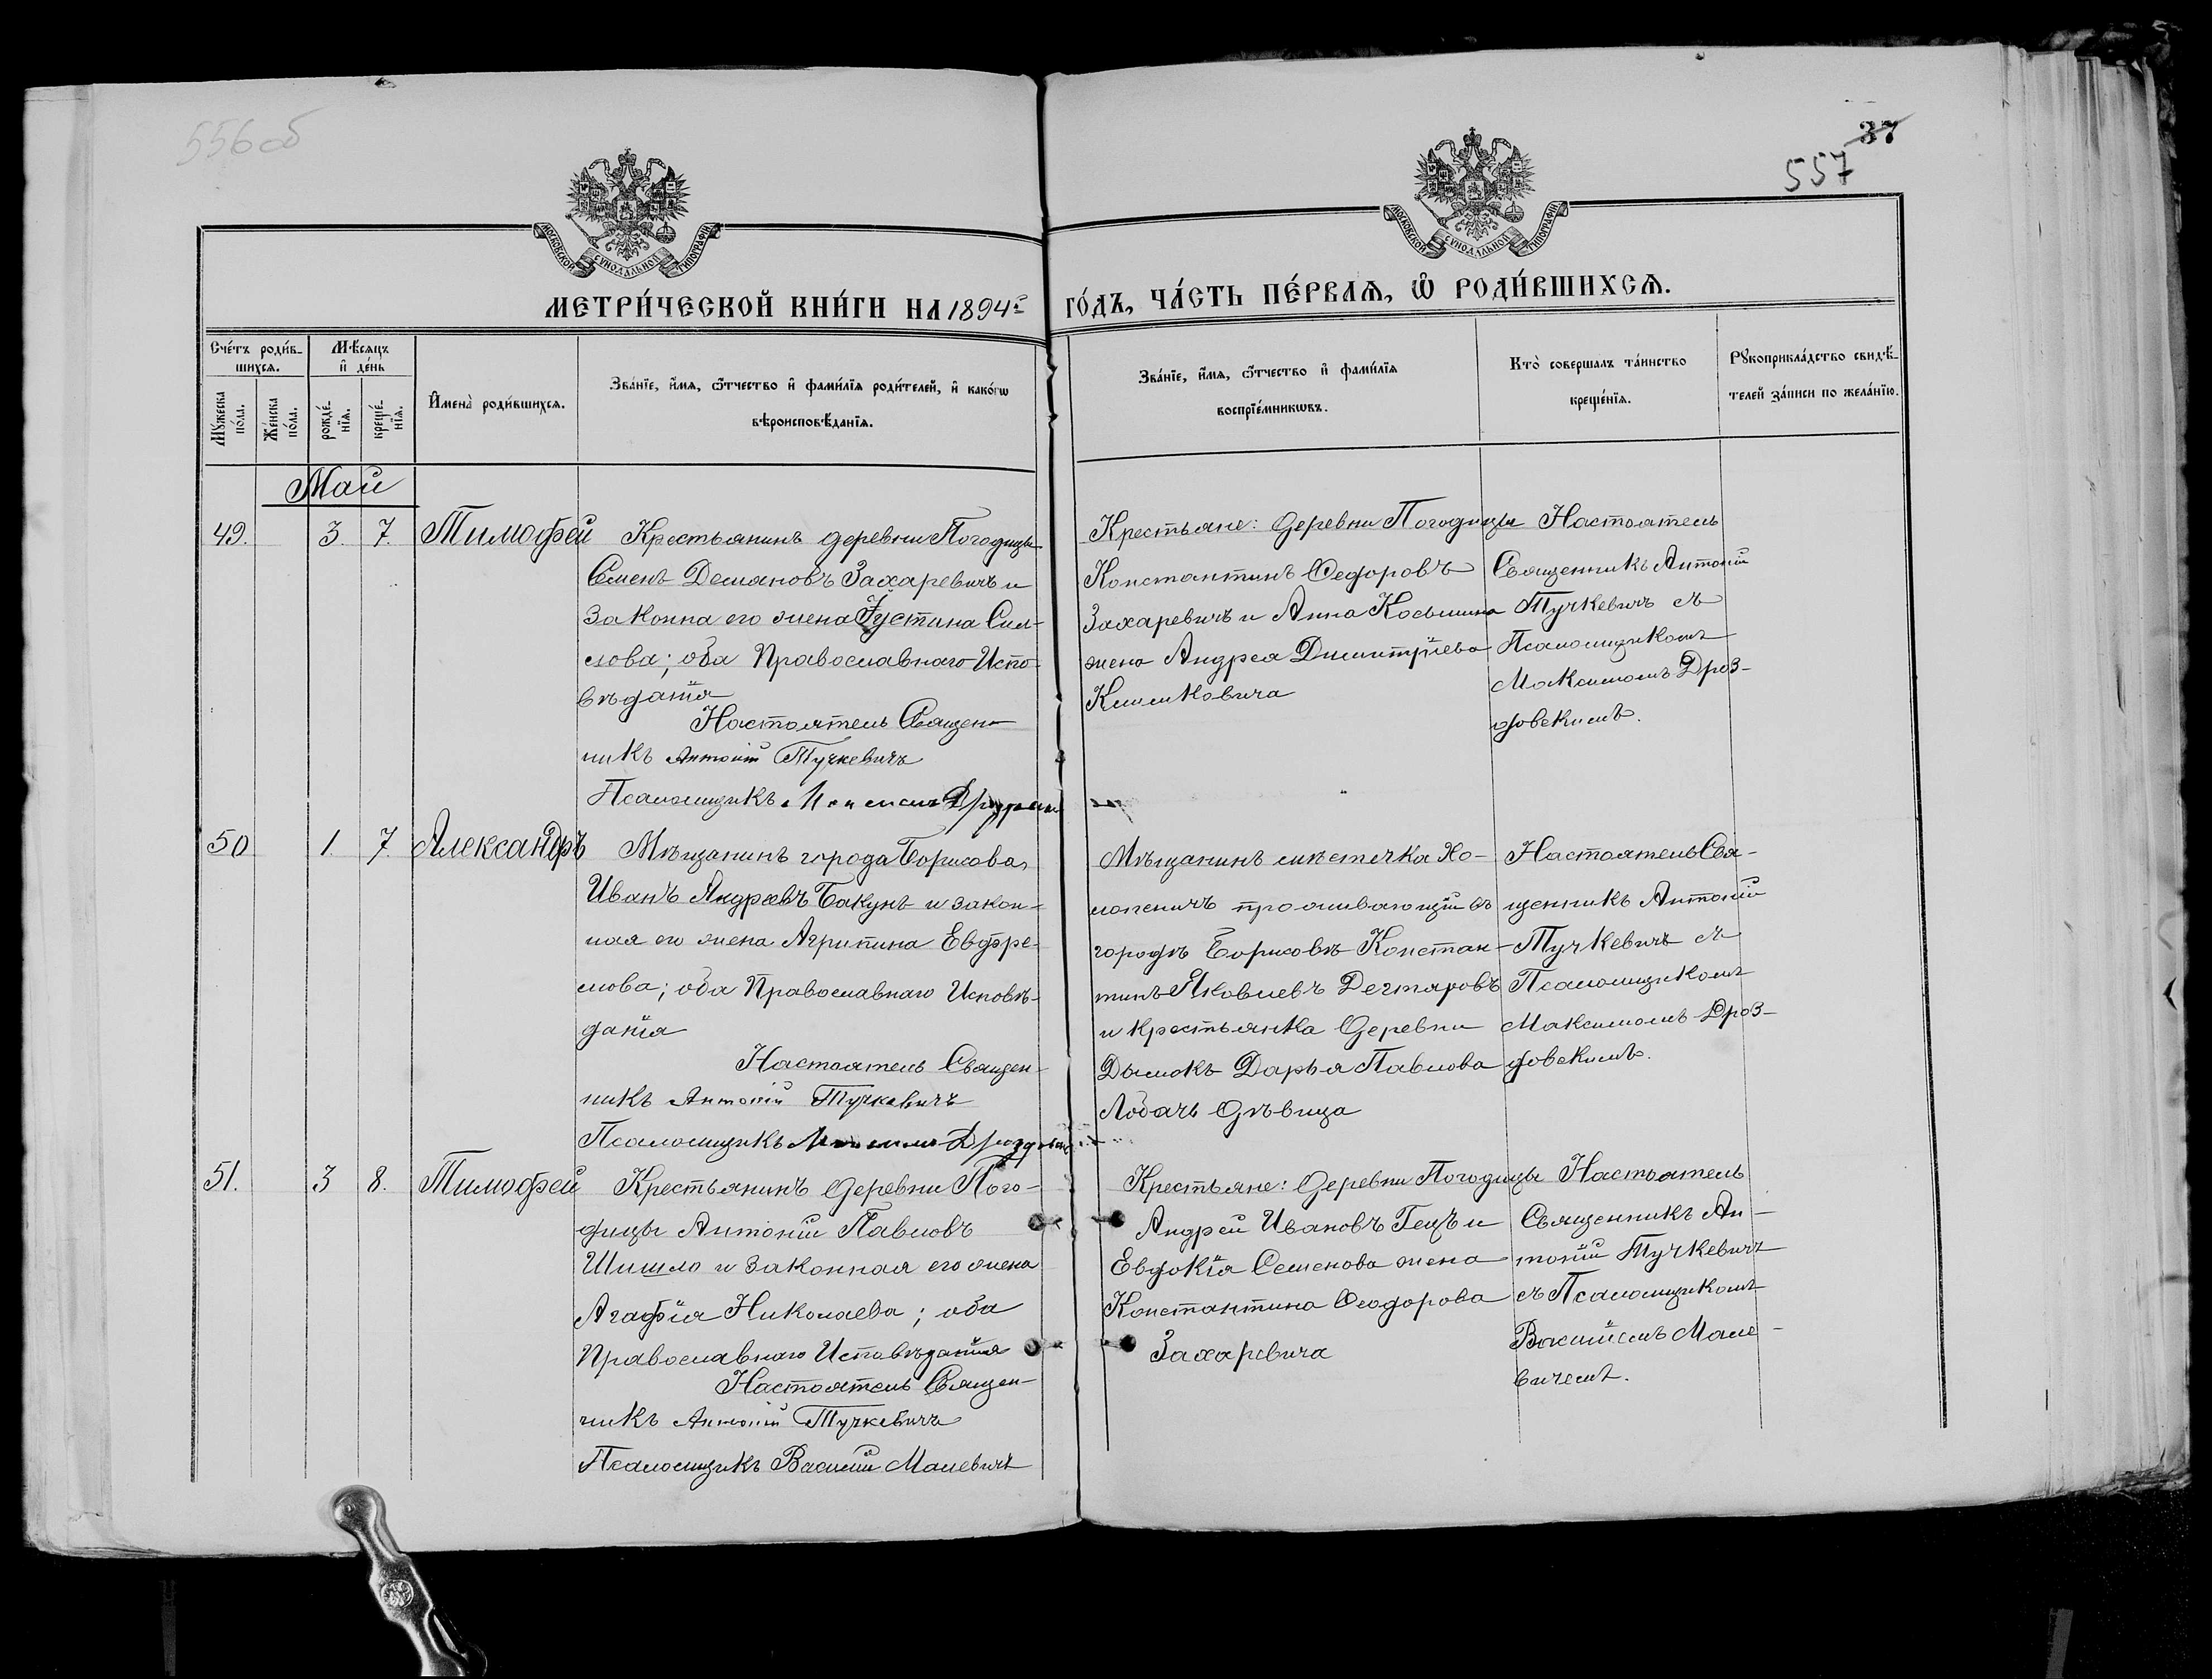 556 об
37
557
МОСКОВСКОЙ СѴНОДАЛЬНОЙ ТИПОГРАФІИ
МОСКОВСКОЙ СѴНОДАЛЬНОЙ ТИПОГРАФІИ
МЕТРИ́ЧЕСКОЙ КНИ́ГИ НА 1894й ГО́ДЪ, ЧА́СТЬ ПЕ́РВАѦ, Ѡ҆ РОДИ́ВШИХСѦ.
Сче́тъ роди́в-
шихсѧ.
Мѣ́сѧцъ
и҆ де́нь
Мꙋ́жеска
по́ла.
Же́нска
по́ла.
рожде́-
нїѧ.
креще́-
нїѧ.
И҆мена̀ роди́вшихсѧ.
Зва́нїе, и҆́мѧ, ѻ҆́тчество и҆ фами́лїѧ роди́телей, и҆ како́гѡ
вѣроисповѣ́данїѧ.
Зва́нїе, и҆́мѧ, ѻ҆́тчество и҆ фами́лїѧ
воспрїе́мникѡвъ.
Кто̀ соверша́лъ та́инство
креще́нїѧ.
Рꙋкоприкла́дство свидѣ́-
телей за́писи по жела́нїю.
Май
49. 3. 7. Тимофей
Крестьянинъ деревни Погодицы
Семенъ Демяновъ Захаревичъ и
законна его жена Іустина Сил-
лова; оба Православнаго Испо-
вѣданія
Настоятель Священ-
никъ Антоній Тучкевичъ
Псаломщикъ
Крестьяне: деревни Погодицы
Константинъ Ѳедоровъ
Захаревичъ и Анна Косьмина
жена Андрея Димитріева
Климковича
Настоятель
Священникъ Антоній
Тучкевичъ съ
Псаломщикомъ
Максимомъ Дроз-
довскимъ.
50 1. 7. Александръ
Мѣщанинъ города Борисова,
Иванъ Андреевъ Бакунъ и закон-
ная его жена Агрипина Евфре-
мова; оба Православнаго Исповѣ-
данія
Настоятель Священ-
никъ Антоній Тучкевичъ
Псаломщикъ
Мѣщанинъ мѣстечка Хо-
лопеничъ проживающій въ
городѣ Борисовѣ Констан-
тинъ Яковлевъ Дегтяровъ
и крестьянка деревни
Дымокъ Дарья Павлова
Лобачъ дѣвица
Настоятель Свя-
щенникъ Антоній
Тучкевичъ съ
Псаломщикомъ
Максимомъ Дроз-
довскимъ.
51. 3 8. Тимофей
Крестьянинъ деревни Пого-
дицы Антоній Павловъ
Шишло и законная его жена
Агафія Николаева; оба
Православнаго Исповѣданія
Настоятель Священ-
никъ Антоній Тучкевичъ
Псаломщикъ Василій Малевичъ
Крестьяне: деревни Погодицы
Андрей Ивановъ Гецъ и
Евдокія Семенова жена
Константина Ѳеодорова
Захаревича
Настоятель
Священникъ Ан-
тоній Тучкевичъ
съ Псаломщикомъ
Василіемъ Мале-
вичемъ.